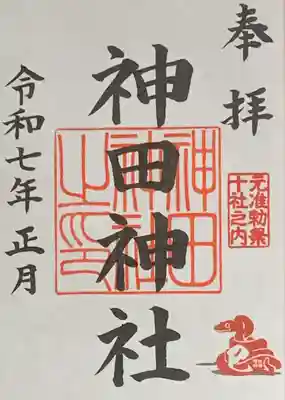 奉拝
元准勅祭
十社之内
神田神社
神田
神社
之印
令和七年 正月